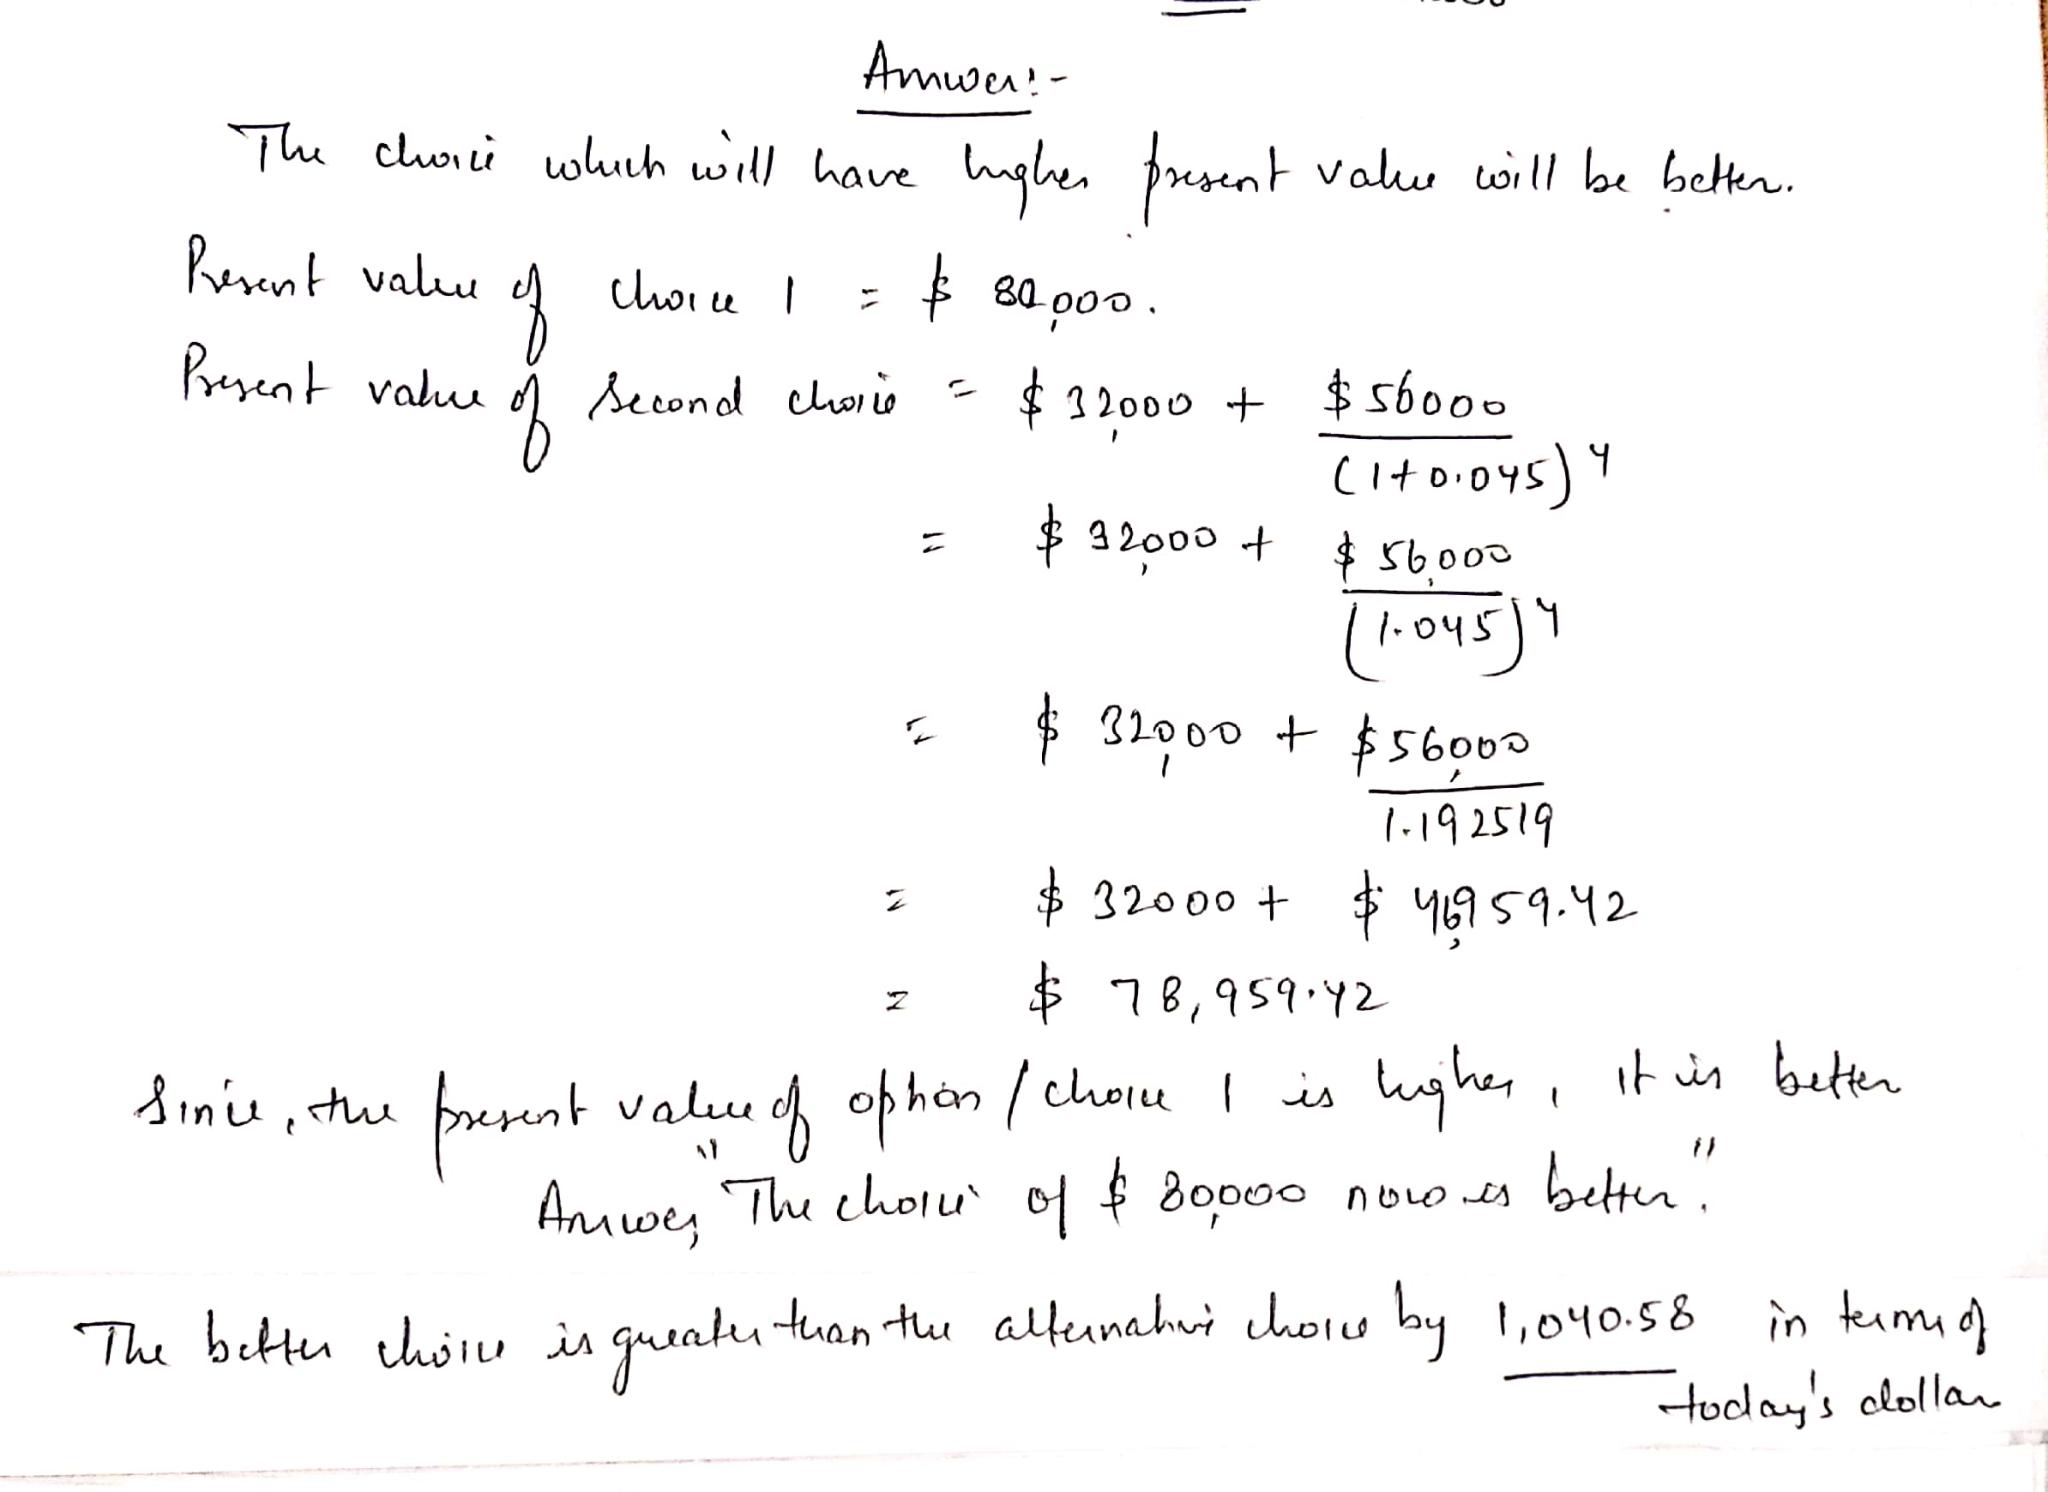 Answer:-
The choice which will have higher present value will be better.
Present value of choice 1 = $ 80,000.
Present value of second choice = $ 32,000 + $ 56000
(1+0.045)4
= $ 32,000 + $ 56,000
(1.045)4
= $ 32,000 + $ 56,000
1.192519
= $ 32000 + $ 46,959.42
= $ 78,959.42
Since, the present value of option / choice 1 is higher, it is better
Answer, "The choice of $ 80,000 now is better."
The better choice is greater than the alternative choice by 1,040.58 in term of
today's dollar